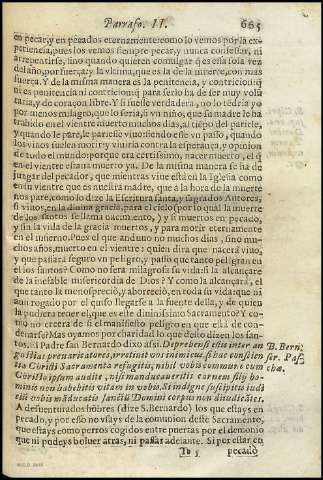 Parrafo. II. 665
en pecar, y en pecados eternamente: como lo vemos por la ex
periencia, pues los vemos siempre pecar, y nunca confessar, ni
arrepentirse, sino quando quieren comulgar q̃ es esta sola vez
del año, por fuerça: y la vltima, que es la de la muerte, con mas
fuerça. Y de la misma manera es la penitencia, y contricion: q̃
ni es penitencia ni contricion q̃ para serlo ha de ser muy volũ
taria, y de coraçon libre. Y si fuesse verdadera, no lo tedria yo
por menos milagro, que lo seria, si vn niño, que su madre le ha
trahido en el vientre muerto muchos dias, al tiẽpo del parirle,
y quando le pare, le pariesse viuo: siendo esse vn passo, quando
los viuos suelen morir, y viuiria contra la esperança, y opinion
de todo el mundo: porque era certissimo, nacer muerto, el q̃
en el vientre estaua muerto ya. De la misma manera se ha de
juzgar del pecador, que mientras viue està en la Iglesia como
en tu vientre que es nuestra madre, que a la hora de la muerte
nos pare, como lo dize la Escritura santa, y sagrados Autores,
si viuos, en la diuina gracia, para el cielo (por lo qual la muerte
de los santos se llama nacimiento,) y si muertos en pecado,
y sin la vida de la gracia muertos, y para morir eternamente
en el infierno. Pues el que anduuo no muchos dias, sino mu-
chos años, muerto en el vientre: quien dira que nacerà viuo,
y que passarà seguro vn peligro, y passo que tanto peligran en
el los santos? Como no serà milagrosa su vida: si la alcançare
de la inefable misericordia de Dios? Y como la alcançarà, el
que tanto la menospreciò, y aborreciò, en toda su vida: que ni
aun rogado por el quiso llegarse a la fuente della, y de quien
la pudiera tener, que es este diuinissimo Sacramento? Y co-
mo no crecerà de si el manifiesto peligro en que està de con-
denarse? Mas oyamos por charidad lo que desto dizen los san-
tos. El Padre san Bernardo dixo assi. Deprehensi estis inter an
gustias prauaricatores, irretiuit vos inimicus, si hac conscien
tia Christi Sacramenta refugitis, nihil vobis commune cum
Christo ipsum audite, nisi manducaueritis carnem filij ho-
minis non habebitis vitam in vobis. Si indigne suscipitis iudi
cium vobis māducatis sanctum Domini corpus non diiudicātes.
A desuenturados hōbres (dize S. Bernardo) los que estays en
pecado, y por esso no vsays de la comunion deste Sacramento,
que estays como perros cogidos entre puertas por el demonio
que ni podeys boluer atras, ni passar adelante. Si por estar en
pecado
B. Bern.
ser. Pas
chæ.